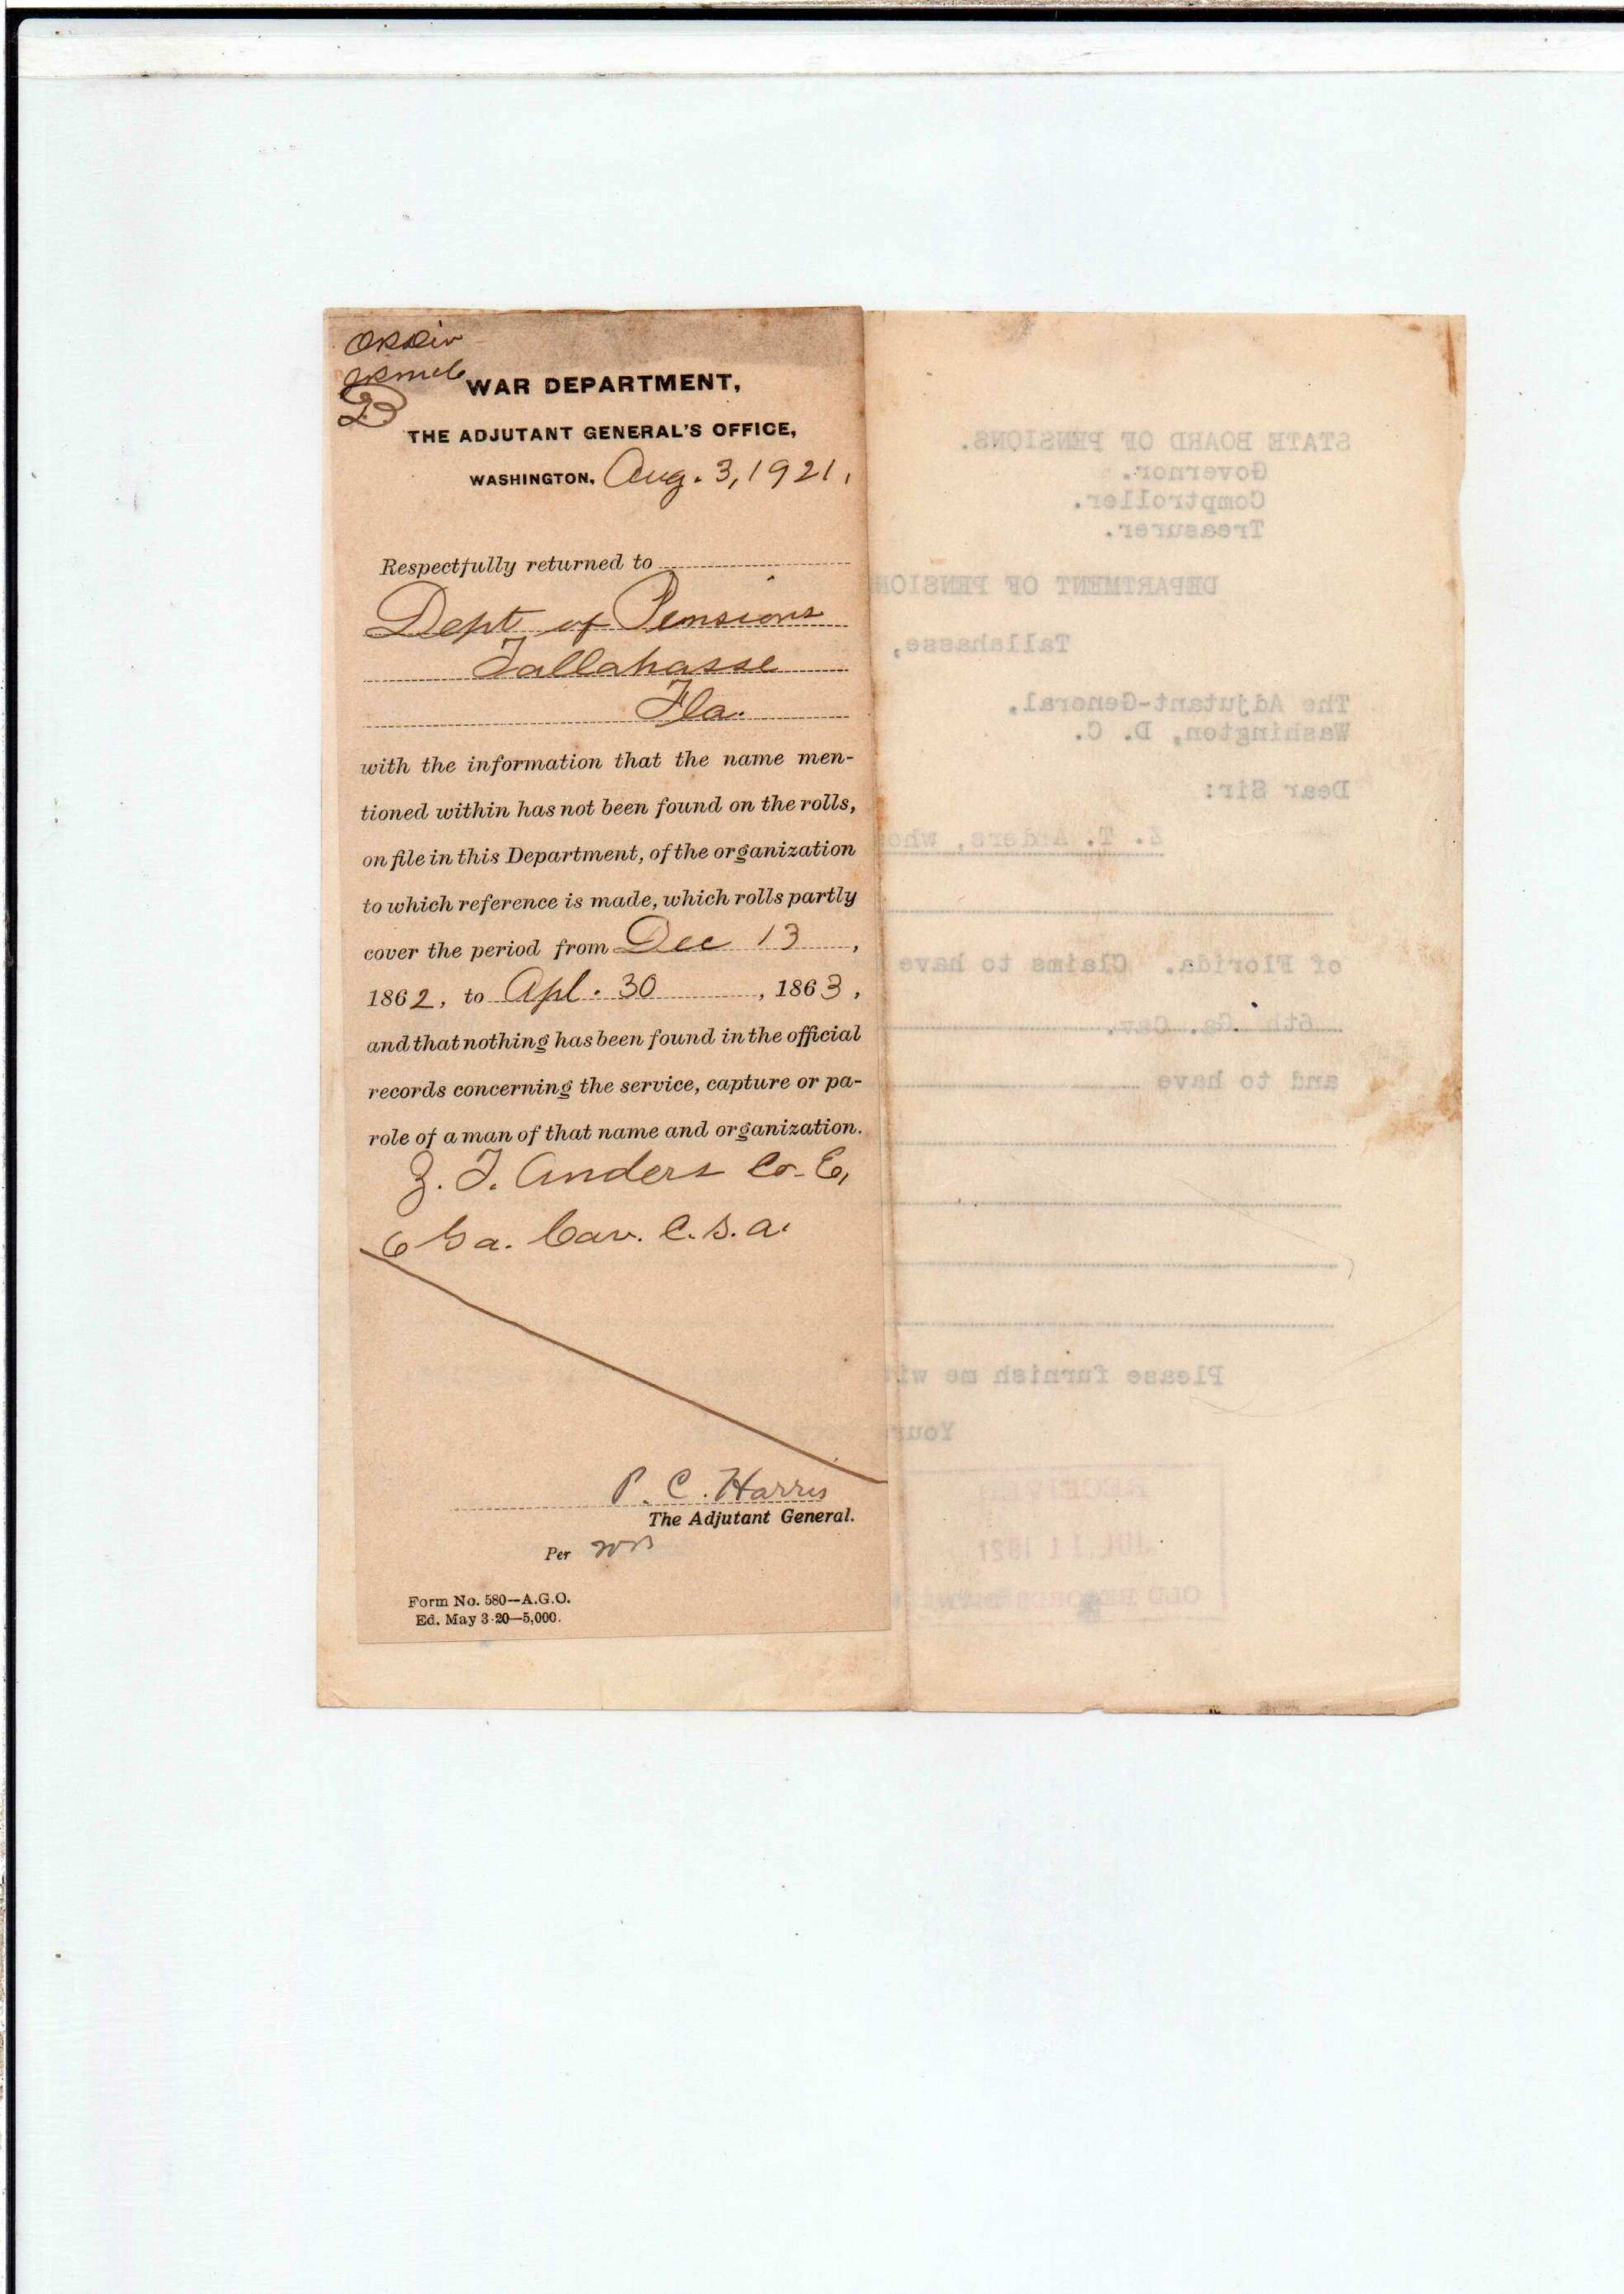 WAR DEPARTMENT,
THE ADJUTANT GENERAL'S OFFICE,
WASHINGTON, Aug. 3, 1921,
Respectfully returned to
Dept of Pensions
Tallahasse
Fla.
with the information that the name men-
tioned within has not been found on the rolls,
on file in this Department, of the organization
to which reference is made, which rolls partly
cover the period from Dec 13,
1862, to Apl. 30, 1863,
and that nothing has been found in the official
records concerning the service, capture or pa-
role of a man of that name and organization.
Z. T. Anders Co. E,
6 Ga. Cav. C.S.A.
P. C. Harris
The Adjutant General.
Per
Form No. 580—A.G.O.
Ed. May 3-20—5,000.
STATE BOARD OF PENSIONS.
Governor.
Comptroller.
Treasurer.
DEPARTMENT OF PENSION
Tallahasse,
The Adjutant-General,
Washington, D. C.
Dear Sir:
Z. T. Anders, who
of Florida. Claims to have
6th Ga. Cav.
and to have
Please furnish me wi
Your
RECEIVED
JUL 11 1921
OLD RECORDS